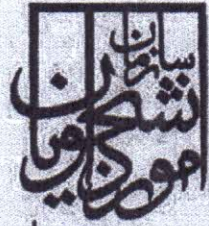 سازمان
امور دانشجویان